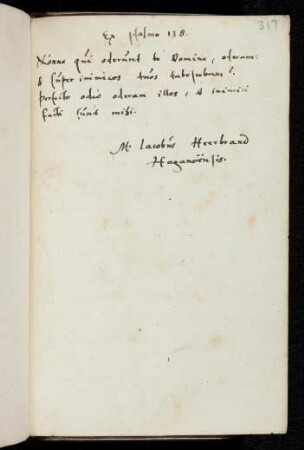 317
Ex psalmo 138.
Nonne qui oderunt te Domine, oderam:
& super inimicos tuos tabescebam?
perfecto odio oderam illos, & inimici
facti sunt mihi.
M. Iacobus Heerbrand
Haganoënsis.